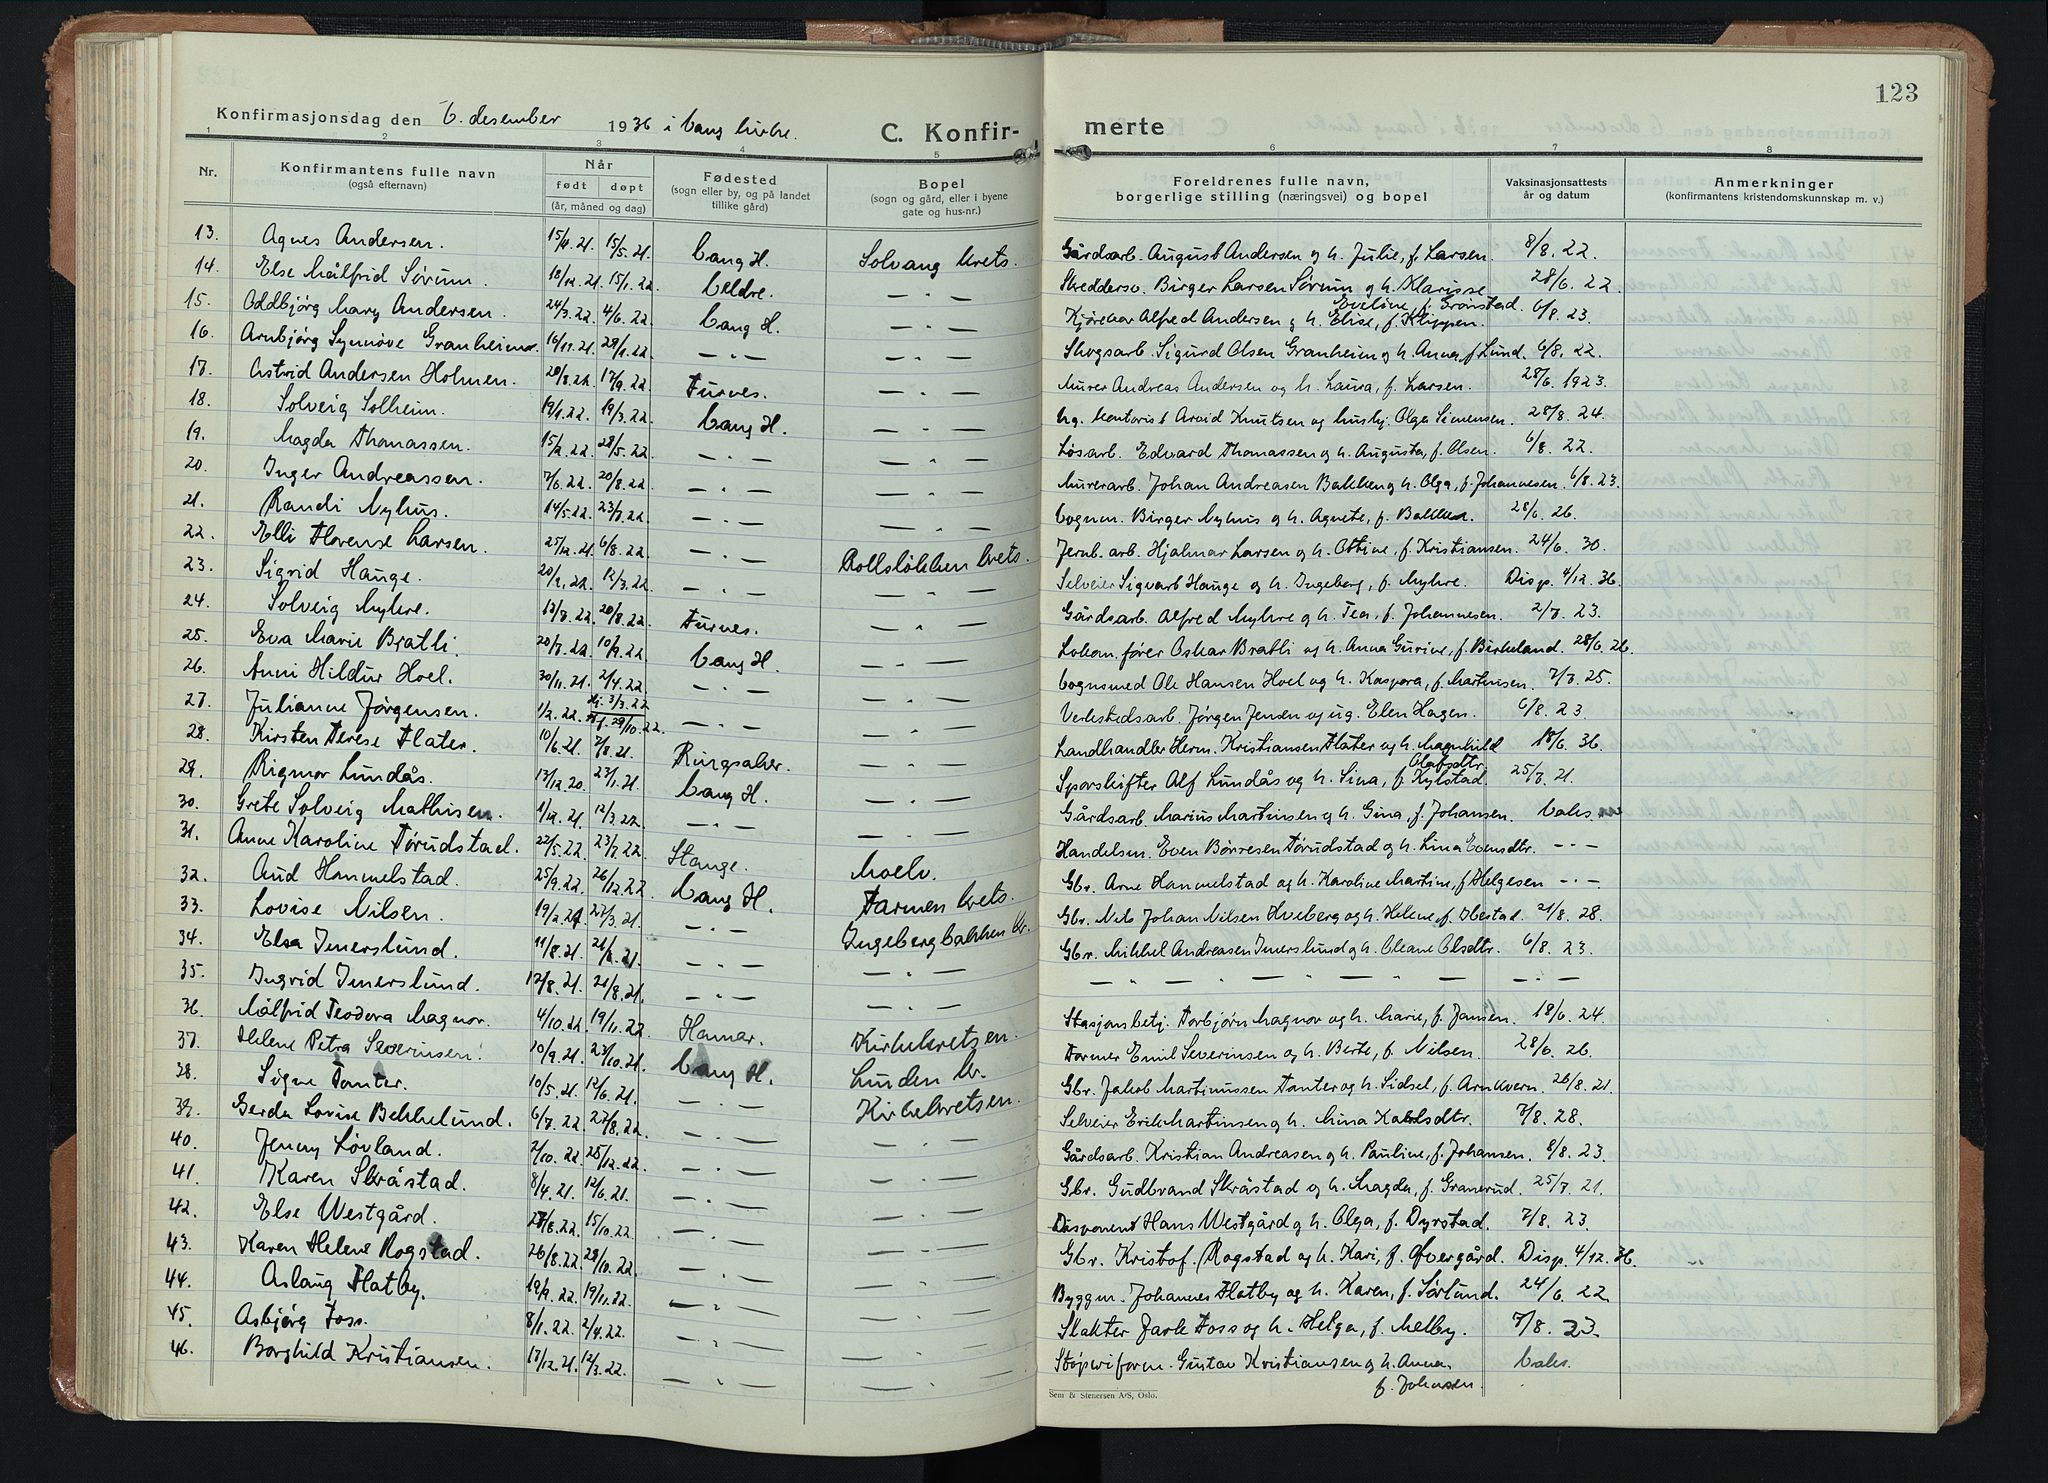 123
Konfirmasjonsdag den 6. desember 1936 i Vang kirke.
C. Konfir- merte
1 2 3 4 5 6 7 8
Nr. Konfirmantens fulle navn (også efternavn) Når født døpt (år, måned og dag) Fødested (sogn eller by, og på landet tillike gård) Bopel (sogn og gård, eller i byene gate og hus-nr.) Foreldrenes fulle navn, borgerlige stilling (næringsvei) og bopel Vaksinasjonsattests år og datum Anmerkninger (konfirmantens kristendomskunnskap m. v.)
13. Agnes Andersen. 15/4.21. 15/5.21. Vang H. Solvang krets. Gårdsarb. August Andersen og h. Julie, f. Larsen. 8/8. 22.
14. Else Målfrid Sørum. 18/12.21. 15/1.22. Veldre. — " — Skreddersv. Birger Larsen Sørum og h. Klarisse Eveline, f. Grønstad. 28/6. 22.
15. Oddbjørg Mary Andersen. 24/3.22. 4/6.22. Vang H. — " — Kjørekar Alfred Andersen og h. Elise, f. Klippen. 6/8. 23.
16. Arnbjørg Synnøve Granheim. 16/11.21. 29/1.22. — " — — " — Skogsarb. Sigurd Olsen Granheim og h. Anna, f. Lund. 6/8. 22.
17. Astrid Andersen Holmen. 20/8.22. 17/9.22. Furnes. — " — Murer Andreas Andersen og h. Laura, f. Larsen. 28/6. 1923.
18. Solveig Solheim. 19/1.22. 19/3.22. Vang H. — " — Ug. kontorist Arvid Knutsen og hushj. Olga Simensen. 28/8. 24.
19. Magda Thomassen. 15/2.22. 28/5.22. — " — — " — Løsarb. Edvard Thomassen og h. Augusta, f. Olsen. 6/8. 22.
20. Inger Andreassen. 7/6.22. 20/8.22. — " — — " — Murerarb. Johan Andreasen Bakken og h. Olga, f. Johannesen. 6/8. 23.
21. Randi Nyhus. 14/5.22. 23/7.22. — " — — " — Vognm. Birger Nyhus og h. Agnete, f. Bakken. 28/6. 26.
22. Elli Florense Larsen. 25/12.21. 6/8.22. — " — Rollsløkken krets. Jernb. arb. Hjalmar Larsen og h. Ottine, f. Kristiansen. 24/6. 30.
23. Sigrid Hauge. 20/1.22. 12/3.22. — " — — " — Selveier Sigvart Hauge og h. Ingeborg, f. Myhre. Disp. 4/12. 36.
24. Solveig Myhre. 17/7.22. 20/8.22. Furnes. — " — Gårdsarb. Alfred Myhre og h. Tea, f. Johannesen. 2/7. 23.
25. Eva Marie Bratli. 20/7.22. 10/9.22. Vang H. — " — Lokom. fører Oskar Bratli og h. Anna Gurine, f. Birkeland. 28/6. 26.
26. Anni Hildur Hoel. 30/11.21. 2/4.22. — " — — " — Vognsmed Ole Hansen Hoel og h. Kaspara, f. Martinsen. 7/7. 25.
27. Julianne Jørgensen. 1/2.22. Hj. 3/3.22 St. f. 29/10.22. — " — — " — Verkstedsarb. Jørgen Jensen og ug. Elen Hagen. 6/8. 23.
28. Kirsten Terese Flater. 10/6.21. 7/8.21. Ringsaker. — " — Landhandler Herm. Kristiansen Flater og h. Magnhild Olafsdtr. 18/6. 36.
29. Rigmor Lundås. 13/12.20. 23/1.21. Vang H. — " — Sporskifter Alf Lundås og h. Sina, f. Kylstad. 25/7. 21.
30. Grete Solveig Mathisen. 1/12.21. 12/3.22. — " — — " — Gårdsarb. Marius Martinsen og h. Gina, f. Johansen. Vaks.
31. Anne Karoline Tørudstad. 22/5.22. 23/7.22. Stange. Moelv. Handelsm. Even Børresen Tørudstad og h. Lina Evensdtr. — " —
32. Aud Hommelstad. 25/9.22. 26/12.22. Vang H. Farmen krets. Gbr. Arne Hommelstad og h. Karoline Martine, f. Helgesen — " —
33. Lovise Nilsen. 19/2.21. 27/3.21. — " — Ingebergbakken kr. Gbr. Nils Johan Nilsen Hveberg og h. Helene, f. Ibestad. 21/8. 28.
34. Elsa Imerslund. 11/8.21. 21/8.21. — " — — " — Gbr. Mikkel Andreasen Imerslund og h. Oleane Olsdtr. 6/8. 23.
35. Ingrid Imerslund. 12/8.21. 21/8.21. — " — — " — — " — " — " — — " —
36. Målfrid Teodora Magnor. 4/10.22. 19/11.22. Hamar. Kirkekretsen. Stasjonsbetj. Torbjørn Magnor og h. Marie, f. Jansen. 18/6. 24.
37. Helene Petra Severinsen. 10/9.21. 23/10.21. Vang H. Lunden kr. Former Emil Severinsen og h. Berte, f. Nilsen. 28/6. 26.
38. Signe Tomter. 10/5.21. 12/6.21. — " — Kirkekretsen. Gbr. Jakob Martinussen Tomter og h. Sidsel, f. Arnkvern. 26/8. 21.
39. Gerda Lovise Bekkelund. 6/7.22. 27/8.22. — " — — " — Selveier Erik Martinsen og h. Mina Karlsdtr. 7/8. 28.
40. Jenny Løvland. 2/10.22. 25/12.22. — " — — " — Gårdsarb. Kristian Andreasen og h. Pauline, f. Johansen. 6/8. 23.
41. Karen Skråstad. 8/4.21. 12/6.21. — " — — " — Gbr. Gudbrand Skråstad og h. Magda, f. Granerud. 25/7. 21.
42. Else Westgård. 27/8.22. 15/10.22. — " — — " — Disponent Hans Westgård og h. Olga, f. Dyrstad. 7/8. 23.
43. Karen Helene Rogstad. 26/8.22. 29/10.22. — " — — " — Gbr. Kristof. Rogstad og h. Kari, f. Øvergård. Disp. 4/12. 36.
44. Aslaug Flatby. 19/9.22. 19/11.22. — " — — " — Byggm. Johannes Flatby og h. Karen, f. Sørlund. 24/6. 22.
45. Asbjørg Foss. 8/1.22. 2/4.22. — " — — " — Slakter Jarle Foss og h. Helga, f. Melby. 7/8. 23.
46. Borghild Kristiansen. 17/12.21. 12/3.22. — " — — " — Støperiform. Gustav Kristiansen og h. Anna, f. Johnsen. Vaks.
Sem & Stenersen A/S, Oslo.